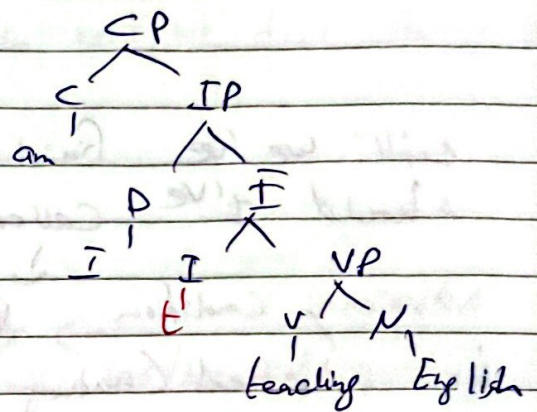 CP
C IP
am
D Ī
I I VP
t V N
teaching English